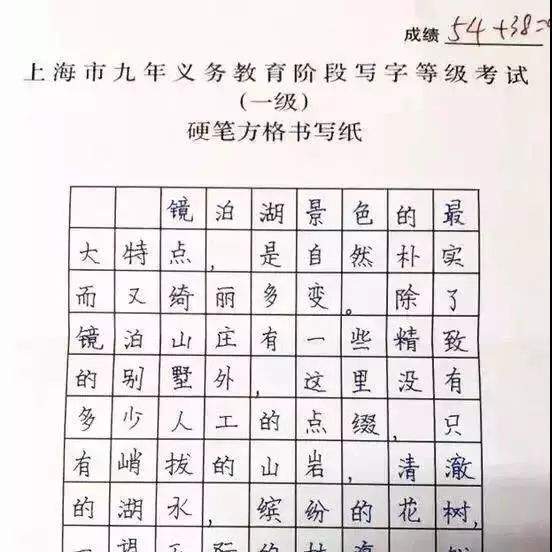 成绩 54+38=
上海市九年义务教育阶段写字等级考试
(一级)
硬笔方格书写纸
镜泊湖景色的最
大特点,是自然朴实
而又绮丽多变。除了
镜泊山庄有一些精致
的别墅外,这里没有
多少人工的点缀,只
有峭拔的山岩,清澈
的湖水,缤纷的花树,
一望无际的林海